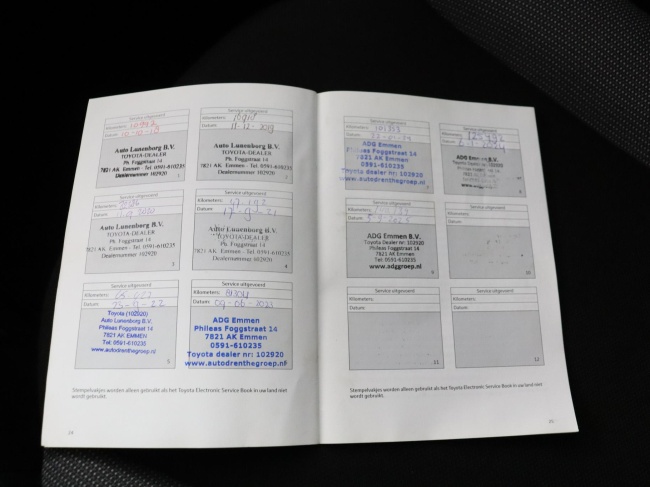 Service uitgevoerd
Kilometers:
Datum:
Auto Lunenborg B.V.
TOYOTA-DEALER
Ph. Foggstraat 14
7821 AK Emmen - Tel: 0591-610235
Dealernummer 102920
1
Service uitgevoerd
Kilometers:
Datum: 11-12-2019
Auto Lunenborg B.V.
TOYOTA-DEALER
Ph. Foggstraat 14
7821 AK Emmen - Tel: 0591-610235
Dealernummer 102920
2
Service uitgevoerd
Kilometers:
Datum: 2020
Auto Lunenborg B.V.
TOYOTA-DEALER
Ph. Foggstraat 14
7821 AK Emmen - Tel: 0591-610235
Dealernummer 102920
3
Service uitgevoerd
Kilometers:
Datum: 17-9-21
Auto Lunenborg B.V.
TOYOTA-DEALER
Ph. Foggstraat 14
7821 AK Emmen - Tel: 0591-610235
Dealernummer 102920
4
Service uitgevoerd
Kilometers:
Datum:
Toyota (102920)
Auto Lunenborg B.V.
Phileas Foggstraat 14
7821 AK EMMEN
Tel: 0591-610235
www.autodrenthegroep.nl
5
Service uitgevoerd
Kilometers:
Datum: 09-06-2023
ADG Emmen
Phileas Foggstraat 14
7821 AK Emmen
0591-610235
Toyota dealer nr: 102920
www.autodrenthegroep.nl
Stempelvakjes worden alleen gebruikt als het Toyota Electronic Service Book in uw land niet
wordt gebruikt.
34
Service uitgevoerd
Kilometers:
Datum:
ADG Emmen
Phileas Foggstraat 14
7821 AK Emmen
0591-610235
Toyota dealer nr: 102920
www.autodrenthegroep.nl
Service uitgevoerd
Kilometers:
Datum:
ADG Emmen B.V.
Toyota Dealer nr: 103920
Phileas Foggstraat 14
7821 AK EMMEN
8
Service uitgevoerd
Kilometers:
Datum: 5-9-2025
ADG Emmen B.V.
Toyota Dealer nr: 103920
Phileas Foggstraat 14
7821 AK EMMEN
Tel: 0591-610235
www.adggroep.nl
9
Service uitgevoerd
Kilometers:
Datum:
10
Service uitgevoerd
Kilometers:
Datum:
11
Service uitgevoerd
Kilometers:
Datum:
12
Stempelvakjes worden alleen gebruikt als het Toyota Electronic Service Book in uw land niet
wordt gebruikt.